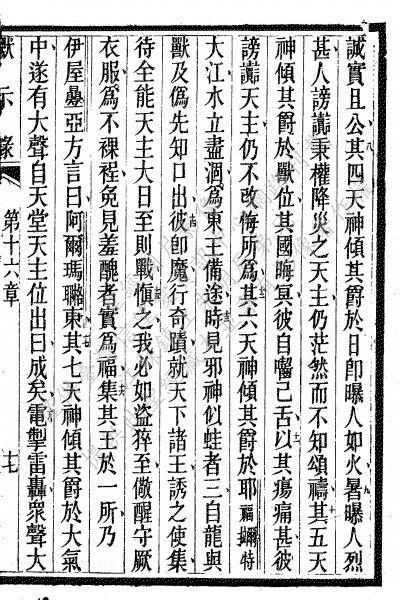 誠實且公其四天神傾其爵於日卽曝人如火暑曝人烈
甚人謗讟秉權降災之天主仍茫然而不知頌禱其五天
神傾其爵於獸位其國晦冥彼自囓己舌以其瘍痛甚彼
謗讟天主仍不改悔所爲其六天神傾其爵於耶福臘特
大江水立盡涸爲東王備途時見邪神似蛙者三自龍與
獸及僞先知口出彼卽魔行奇蹟就天下諸王誘之使集
待全能天主大日至則戰愼之我必如盜猝至儆醒守厥
衣服爲不裸程免見羞醜者實爲福集其王於一所乃
伊屋彝亞方言曰阿爾瑪聮東其七天神傾其爵於大氣
中遂有大聲自天堂天主位出曰成矣電掣雷轟衆聲大
獸示錄
第十六章
七